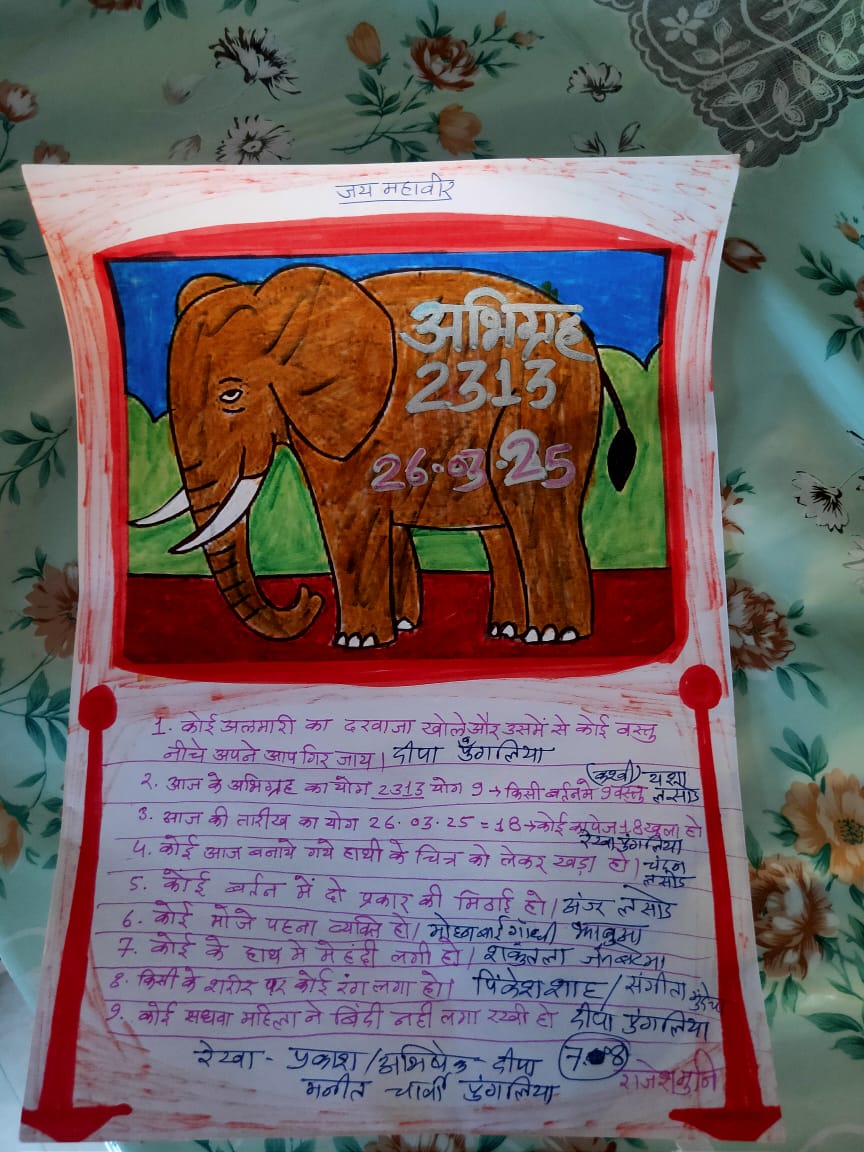 जय महावीर
अभिग्रह
2313
26.03.25
1. कोई अलमारी का दरवाजा खोले और उसमें से कोई वस्तु
नीचे अपने आप गिर जाय। दीपा डुंगलिया
2. आज के अभिग्रह का योग 2313 योग 9 → किसी बर्तन में 9 वस्तु यशा लसोड
3. आज की तारीख का योग 26.03.25 = 18 → कोई का पेज 18 खुला हो
रेखा डुंगलिया
4. कोई आज बनाये गये हाथी के चित्र को लेकर खड़ा हो। चंदन
लसोड
5. कोई बर्तन में दो प्रकार की मिठाई हो। अंजू लसोड
6. कोई मोजे पहना व्यक्ति हो। गाँधी झाबुआ
7. कोई के हाथ मे मेहंदी लगी हो। शकुंतला
8. किसी के शरीर पर कोई रंग लगा हो। पिंकेश शाह / संगीता
9. कोई सधवा महिला ने बिंदी नही लगा रखी हो दीपा डुंगलिया
रेखा - प्रकाश / अभिषेक - दीपा
मनीत चार्वी डुंगलिया
राजेशमुनि